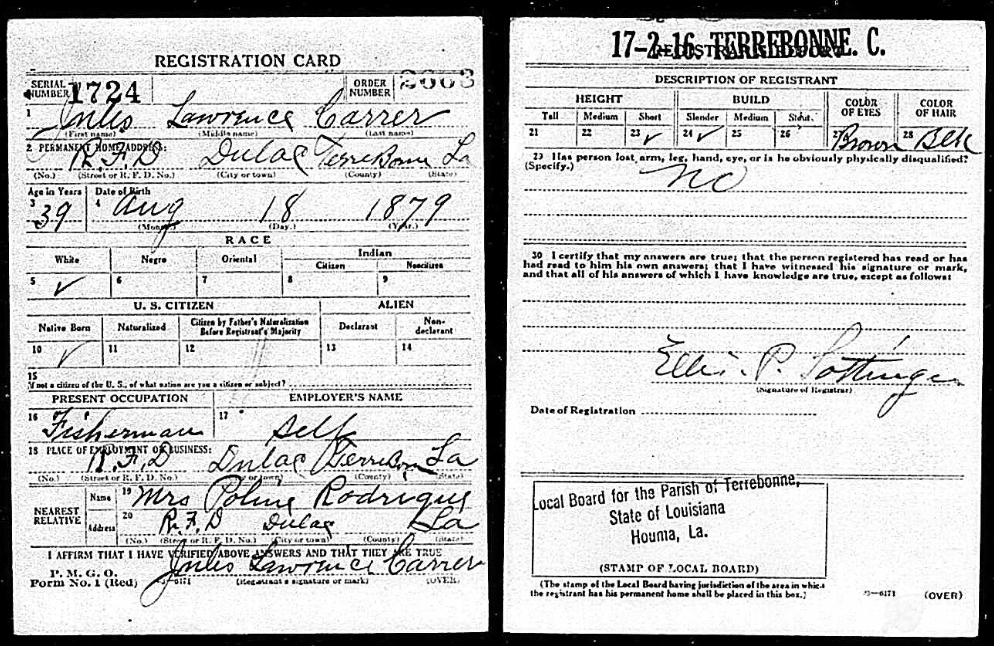 REGISTRATION CARD
SERIAL NUMBER 1724 ORDER NUMBER
1 Jules Lawrence Carrer
(First name) (Middle name) (Last name)
2 PERMANENT HOME ADDRESS:
R. F. D Dulac Terrebonne La
(No.) (Street or R. F. D. No.) (City or town) (County) (State)
Age in Years Date of Birth
3 39 4 Aug 18 1879
(Month.) (Day.) (Year.)
RACE
White Negro Oriental Indian
Citizen Noncitizen
5 ✓ 6 7 8 9
U. S. CITIZEN ALIEN
Native Born Naturalized Citizen by Father's Naturalization Before Registrant's Majority Declarant Non-declarant
10 ✓ 11 12 13 14
15
If not a citizen of the U. S., of what nation are you a citizen or subject?
PRESENT OCCUPATION EMPLOYER'S NAME
16 Fisherman 17 Self
18 PLACE OF EMPLOYMENT OR BUSINESS:
R. F. D Dulac Terrebon La
(No.) (Street or R. F. D. No.) (City or town) (County) (State)
NEAREST RELATIVE Name 19 Mrs Poline Rodrigue
Address 20 R. F. D Dulac La
(No.) (Street or R. F. D. No.) (City or town) (County) (State)
I AFFIRM THAT I HAVE VERIFIED ABOVE ANSWERS AND THAT THEY ARE TRUE
P. M. G. O.
Form No. 1 (Red) Jules Lawrence Carrer
(Registrant's signature or mark) (OVER)
17-2-16. TERREBONNE. C.
REGISTRAR'S REPORT
DESCRIPTION OF REGISTRANT
HEIGHT BUILD COLOR OF EYES COLOR OF HAIR
Tall Medium Short Slender Medium Stout
21 22 23 ✓ 24 ✓ 25 26 27 Brown 28 Blk
29 Has person lost arm, leg, hand, eye, or is he obviously physically disqualified?
(Specify.) no
30 I certify that my answers are true; that the person registered has read or has
had read to him his own answers; that I have witnessed his signature or mark,
and that all of his answers of which I have knowledge are true, except as follows:
P.
(Signature of Registrar)
Date of Registration
Local Board for the Parish of Terrebonne,
State of Louisiana
Houma, La.
(STAMP OF LOCAL BOARD)
(The stamp of the Local Board having jurisdiction of the area in which
the registrant has his permanent home shall be placed in this box.) (OVER)